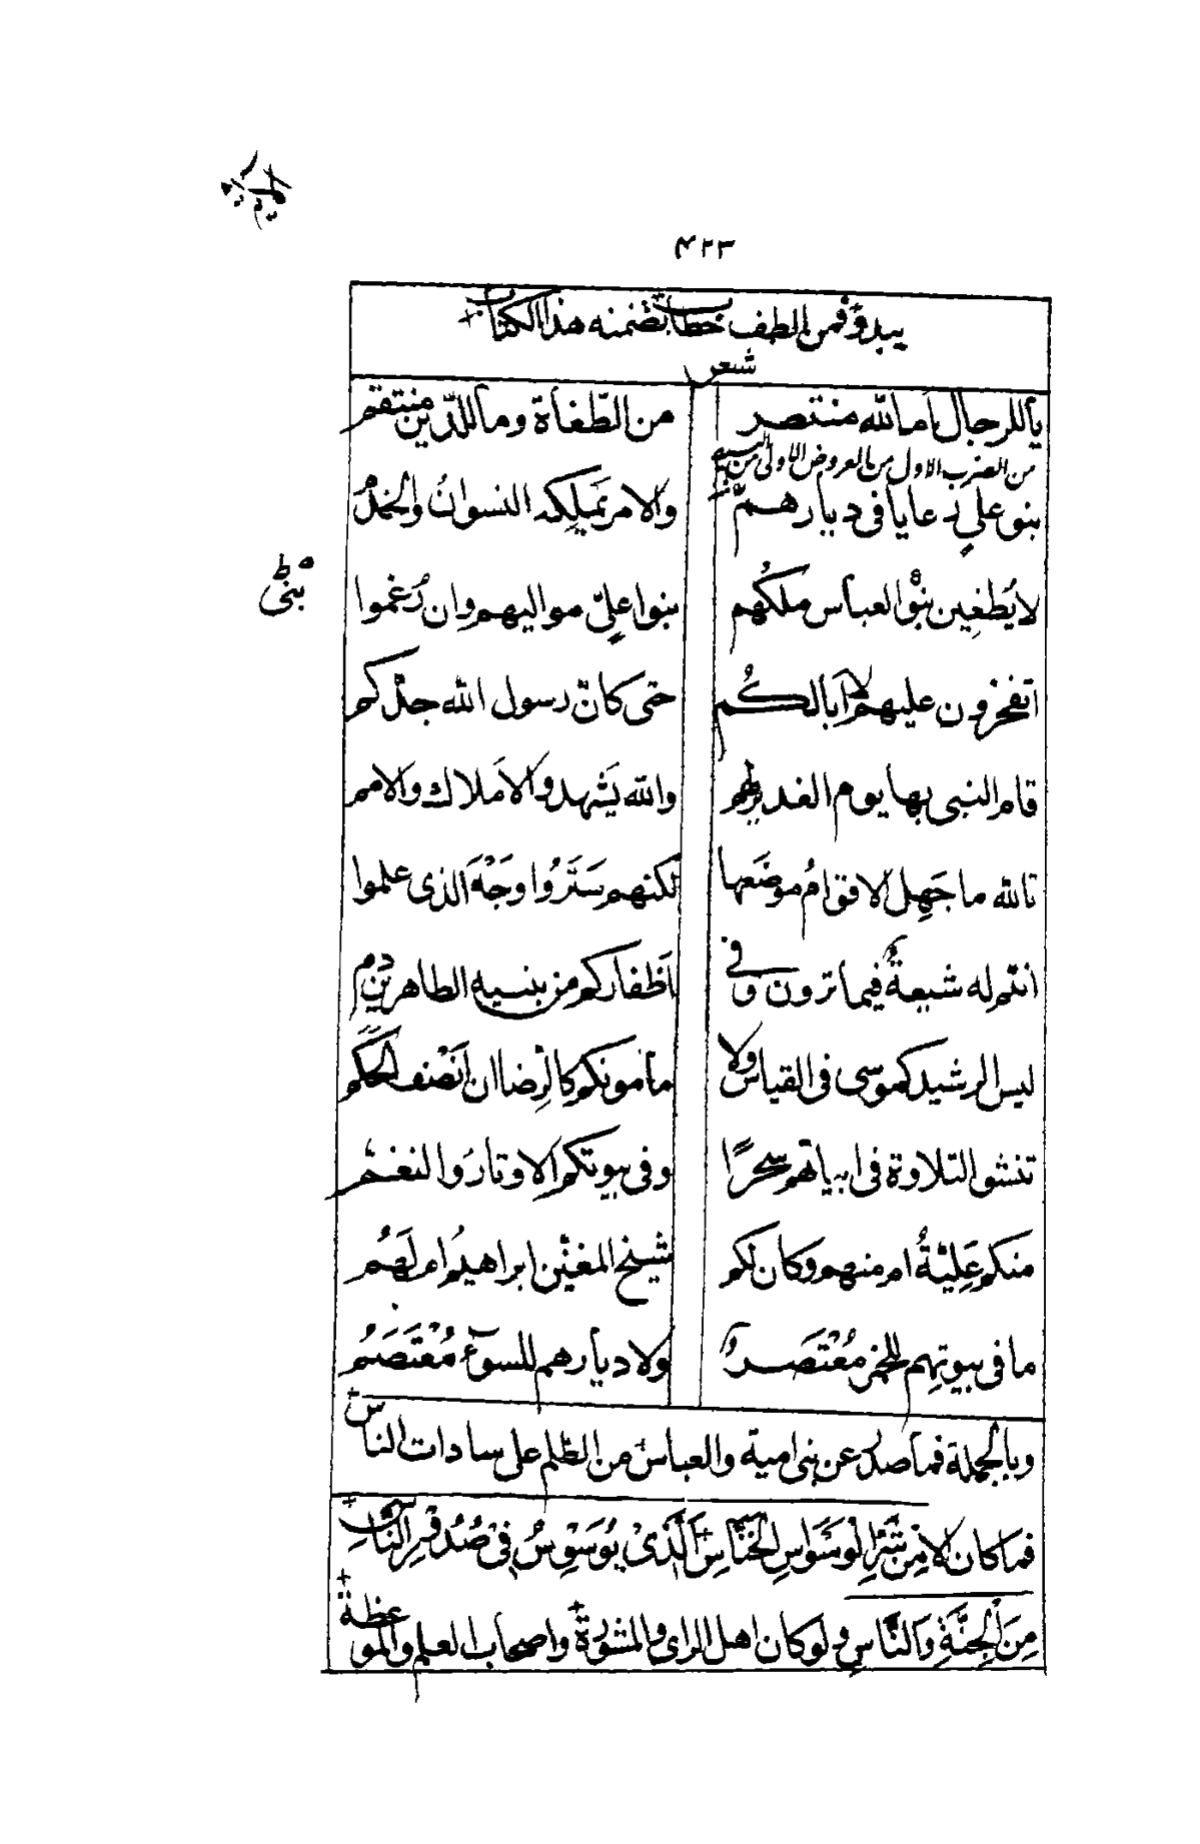 ۴۲۳
يبدو فمن الطف خطاب تضمنه هذا الكتاب
شعر
يا للرجال اما لله منتصر من الطغاة وما للدين منتقم
من الضرب الاول من العروض الاولى من البسيط
بنو علي رعايا في ديارهم والامر تمليكه النسوان والخدم
لا يطغين بنو العباس ملكهم بنوا علي مواليهم وان رغموا
اتفخرون عليهم لا ابا لكم حتى كان رسول الله جدكم
قام النبي بها يوم الغدير لهم والله يشهد والاملاك والامم
تالله ما جهل الاقوام موضعها لكنهم ستروا وجه الذي علموا
انتم له شيعة فيما ترون وفي اظفاركم من بنيه الطاهرين دم
ليس الرشيد كموسى في القياس ولا مأمونكم كالرضا ان انصف الحكم
تنشق التلاوة في ابياتهم سحرًا وفي بيوتكم الاوتار والنغم
منكم علية ام منهم وكان لكم شيخ المغنين ابراهيم ام لهم
ما في بيوتهم للخمر معتصر ولا ديارهم للسوء معتصم
وبالجملة فما صدر عن بنى امية والعباس من الظلم على سادات الناس
فما كان الا مِن شَرِّ الْوَسْوَاسِ الْخَنَّاسِ الَّذِىْ يُوَسْوِسُ فِىْ صُدُوْرِ النَّاسِ
مِنَ الْجِنَّةِ وَالنَّاسِ ولو كان اهل الراى والمشورة واصحاب العلم والموعظة